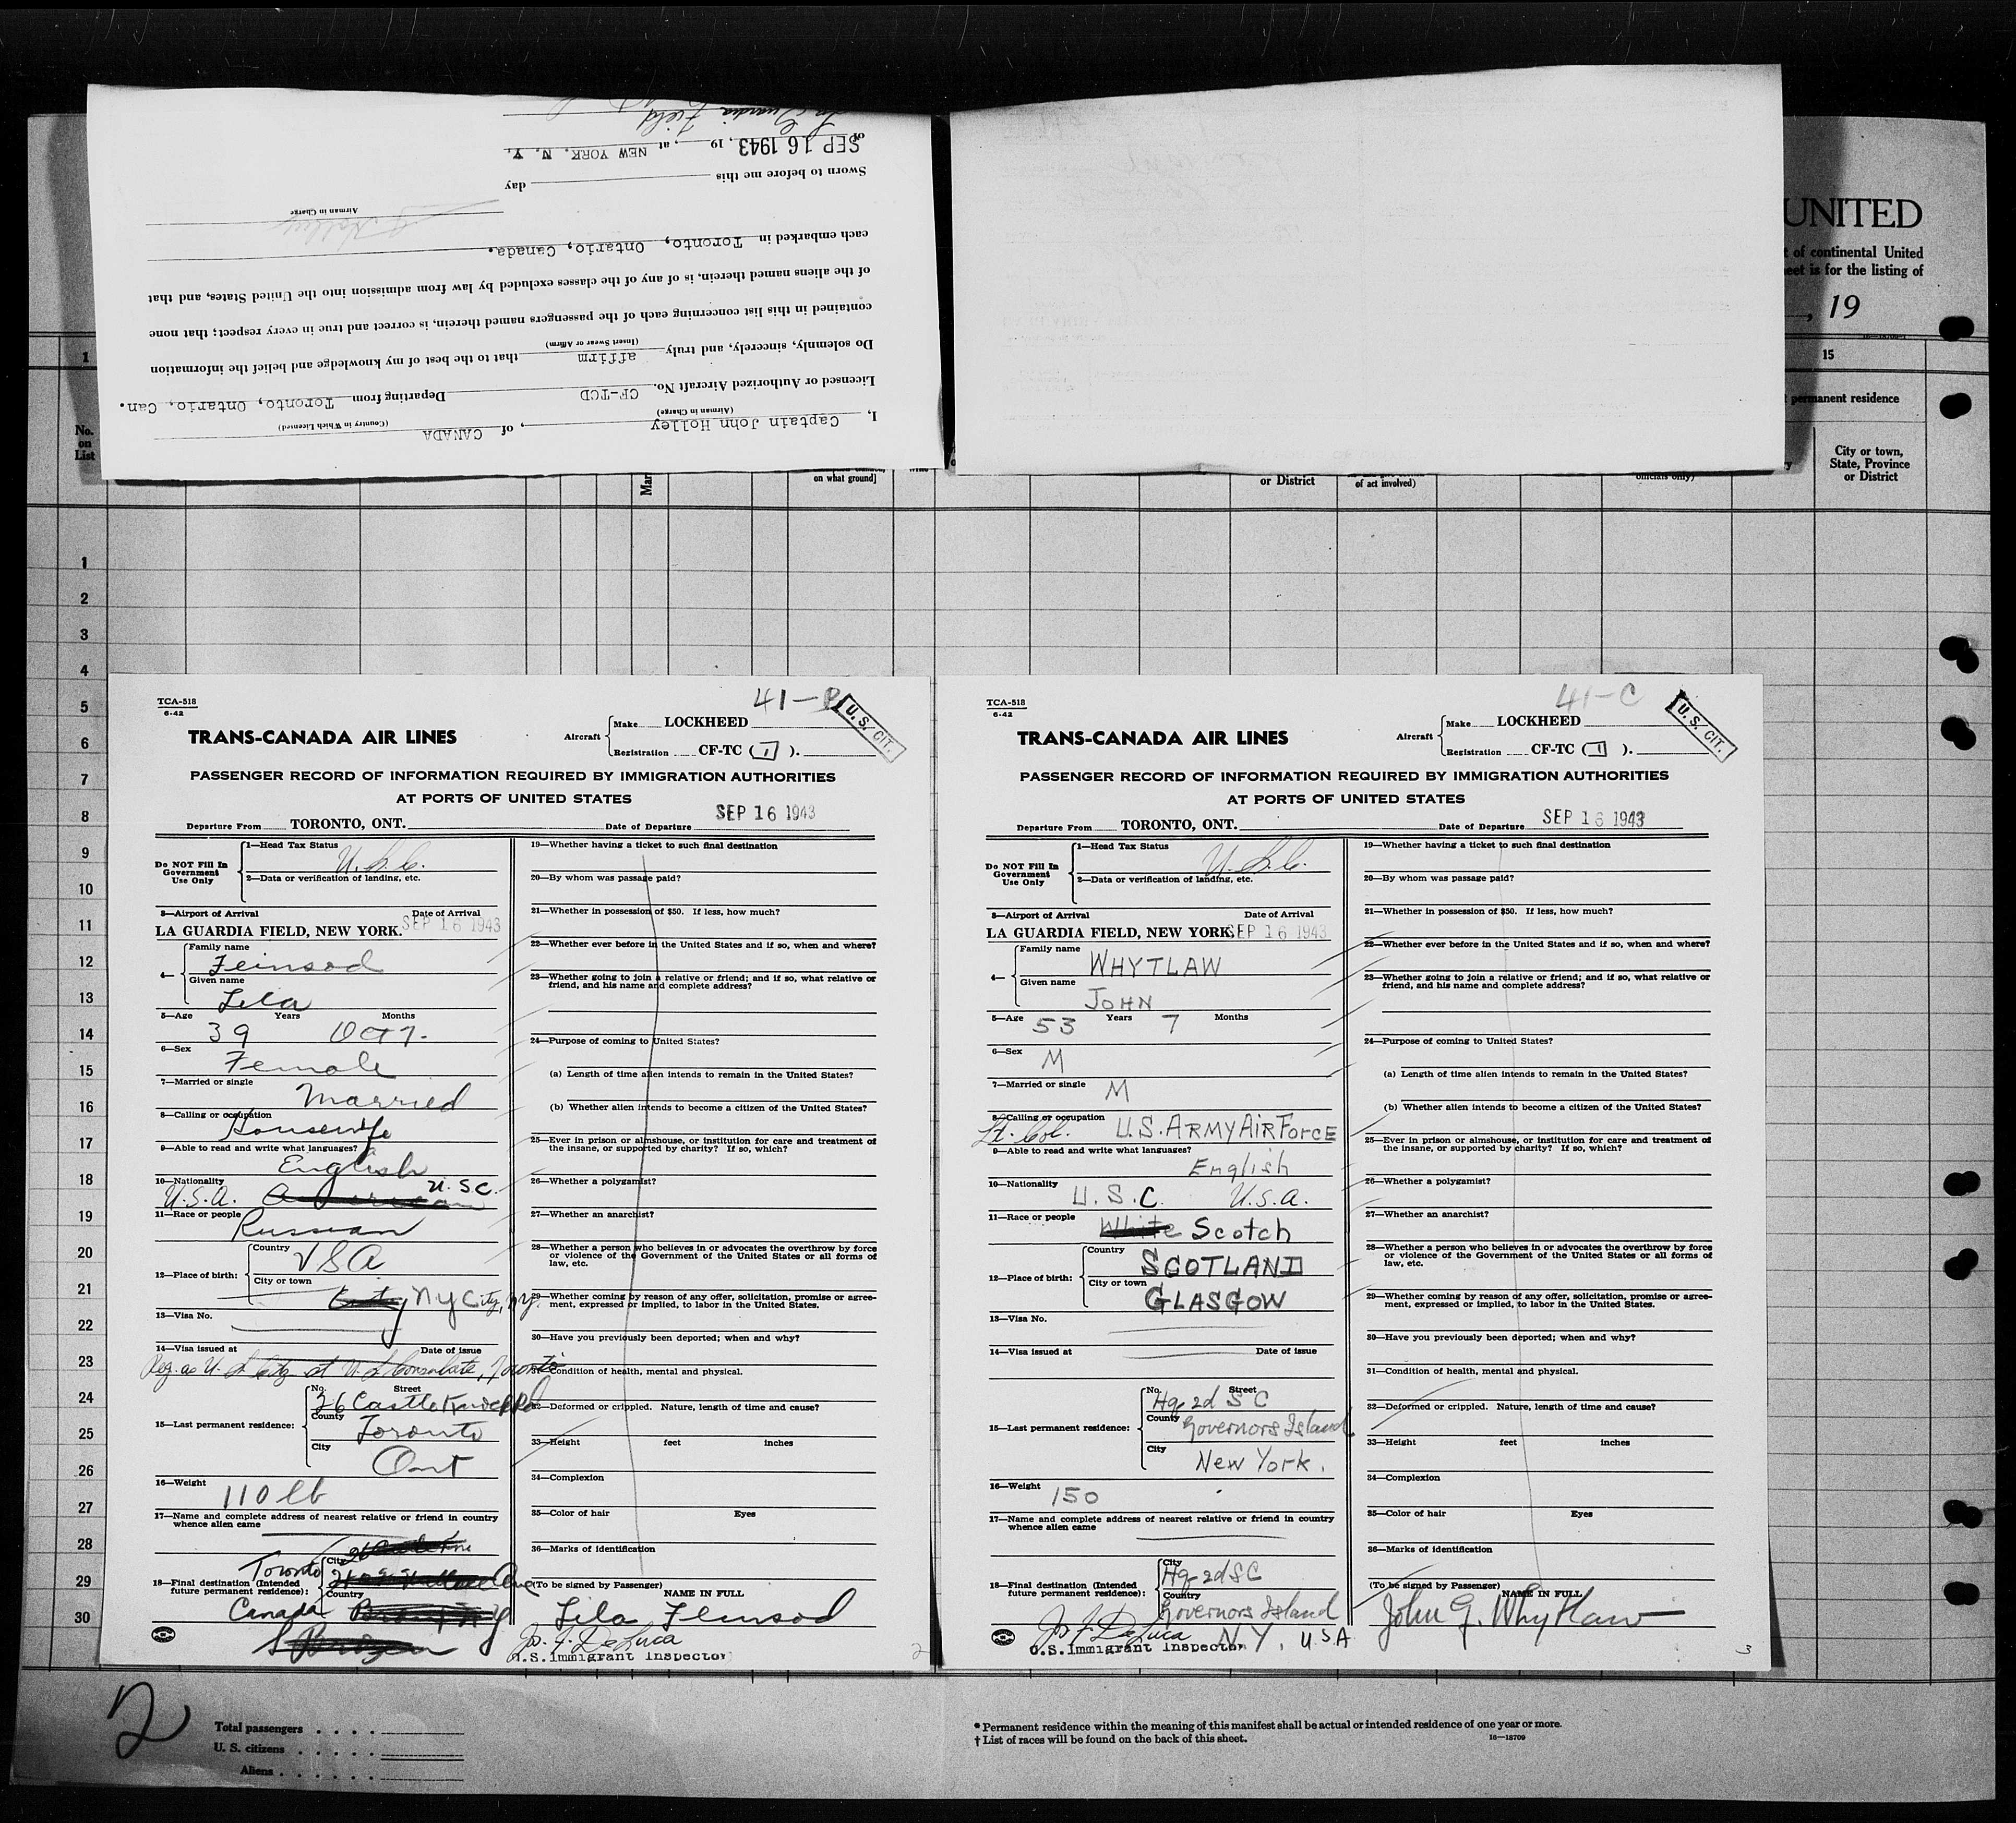 UNITED
t of continental United
eet is for the listing of
, 19
1
15
permanent residence
No.
on
List
City or town,
State, Province
or District
Mar
on what ground]
or District
of act involved)
officials only)
I, Captain John Holley, of CANADA
(Airman in Charge) (Country in Which Licensed)
Licensed or Authorized Aircraft No. CF-TCD Departing from Toronto, Ontario, Can.
Do solemnly, sincerely, and truly affirm that to the best of my knowledge and belief the information
(Insert Swear or Affirm)
contained in this list concerning each of the passengers named therein, is correct and true in every respect; that none
of the aliens named therein, is of any of the classes excluded by law from admission into the United States, and that
each embarked in Toronto, Ontario, Canada.
J Holley
Airman in Charge
Sworn to before me this day
of SEP 16 1943, 19 , at NEW YORK, N. Y.
La Guardia Field
1
2
3
4
5
6
7
8
9
10
11
12
13
14
15
16
17
18
19
20
21
22
23
24
25
26
27
28
29
30
TCA-518
6-42
41-B
U.S. CIT.
TRANS-CANADA AIR LINES
Aircraft
Make LOCKHEED
Registration CF-TC ( 1 ).
PASSENGER RECORD OF INFORMATION REQUIRED BY IMMIGRATION AUTHORITIES
AT PORTS OF UNITED STATES
Departure From TORONTO, ONT. Date of Departure SEP 16 1943
Do NOT Fill In
Government
Use Only
1—Head Tax Status
U.S.C.
2—Data or verification of landing, etc.
3—Airport of Arrival Date of Arrival
LA GUARDIA FIELD, NEW YORK. SEP 16 1943
4—
Family name
Feinsod
Given name
Lila
5—Age Years Months
39 Oct 7.
6—Sex
Female
7—Married or single
Married
8—Calling or occupation
Housewife
9—Able to read and write what languages?
English
10—Nationality
U.S.A. American U.S.C.
11—Race or people
Russian
12—Place of birth:
Country
USA
City or town
City NY City, NY.
13—Visa No.
14—Visa issued at Date of issue
Reg. as U.S. Citz at U.S. Consulate, Toronto
15—Last permanent residence:
No. Street
26 Castle Knock Rd
County
Toronto
City
Ont
16—Weight
110 lb
17—Name and complete address of nearest relative or friend in country
whence alien came
18—Final destination (Intended
future permanent residence):
City
Toronto
Country
Canada
19—Whether having a ticket to such final destination
20—By whom was passage paid?
21—Whether in possession of $50. If less, how much?
22—Whether ever before in the United States and if so, when and where?
23—Whether going to join a relative or friend; and if so, what relative or
friend, and his name and complete address?
24—Purpose of coming to United States?
(a) Length of time alien intends to remain in the United States?
(b) Whether alien intends to become a citizen of the United States?
25—Ever in prison or almshouse, or institution for care and treatment of
the insane, or supported by charity? If so, which?
26—Whether a polygamist?
27—Whether an anarchist?
28—Whether a person who believes in or advocates the overthrow by force
or violence of the Government of the United States or all forms of
law, etc.
29—Whether coming by reason of any offer, solicitation, promise or agree-
ment, expressed or implied, to labor in the United States.
30—Have you previously been deported; when and why?
31—Condition of health, mental and physical.
32—Deformed or crippled. Nature, length of time and cause?
33—Height feet inches
34—Complexion
35—Color of hair Eyes
36—Marks of identification
(To be signed by Passenger) NAME IN FULL
Lila Feinsod
Jos. F. DeLuca
U.S. Immigrant Inspector
2
TCA-518
6-42
41-C
U.S. CIT.
TRANS-CANADA AIR LINES
Aircraft
Make LOCKHEED
Registration CF-TC ( 1 ).
PASSENGER RECORD OF INFORMATION REQUIRED BY IMMIGRATION AUTHORITIES
AT PORTS OF UNITED STATES
Departure From TORONTO, ONT. Date of Departure SEP 16 1943
Do NOT Fill In
Government
Use Only
1—Head Tax Status
U.S.C.
2—Data or verification of landing, etc.
3—Airport of Arrival Date of Arrival
LA GUARDIA FIELD, NEW YORK. SEP 16 1943
4—
Family name
WHYTLAW
Given name
JOHN
5—Age Years Months
53 7
6—Sex
M
7—Married or single
M
8—Calling or occupation
Lt. Col. U.S. ARMY AIR FORCE
9—Able to read and write what languages?
English
10—Nationality
U.S.C. U.S.A.
11—Race or people
White Scotch
12—Place of birth:
Country
SCOTLAND
City or town
GLASGOW
13—Visa No.
14—Visa issued at Date of issue
15—Last permanent residence:
No. Street
Hq 2d SC
County
Governors Island
City
New York.
16—Weight
150
17—Name and complete address of nearest relative or friend in country
whence alien came
18—Final destination (Intended
future permanent residence):
City
Hq 2d SC
Country
Governors Island
N.Y. U.S.A.
Jos F. DeLuca
U.S. Immigrant Inspector
19—Whether having a ticket to such final destination
20—By whom was passage paid?
21—Whether in possession of $50. If less, how much?
22—Whether ever before in the United States and if so, when and where?
23—Whether going to join a relative or friend; and if so, what relative or
friend, and his name and complete address?
24—Purpose of coming to United States?
(a) Length of time alien intends to remain in the United States?
(b) Whether alien intends to become a citizen of the United States?
25—Ever in prison or almshouse, or institution for care and treatment of
the insane, or supported by charity? If so, which?
26—Whether a polygamist?
27—Whether an anarchist?
28—Whether a person who believes in or advocates the overthrow by force
or violence of the Government of the United States or all forms of
law, etc.
29—Whether coming by reason of any offer, solicitation, promise or agree-
ment, expressed or implied, to labor in the United States.
30—Have you previously been deported; when and why?
31—Condition of health, mental and physical.
32—Deformed or crippled. Nature, length of time and cause?
33—Height feet inches
34—Complexion
35—Color of hair Eyes
36—Marks of identification
(To be signed by Passenger) NAME IN FULL
John G. Whytlaw
3
2
Total passengers . . . .
U. S. citizens . . . . .
Aliens . . . . . .
* Permanent residence within the meaning of this manifest shall be actual or intended residence of one year or more.
† List of races will be found on the back of this sheet.
16—18709